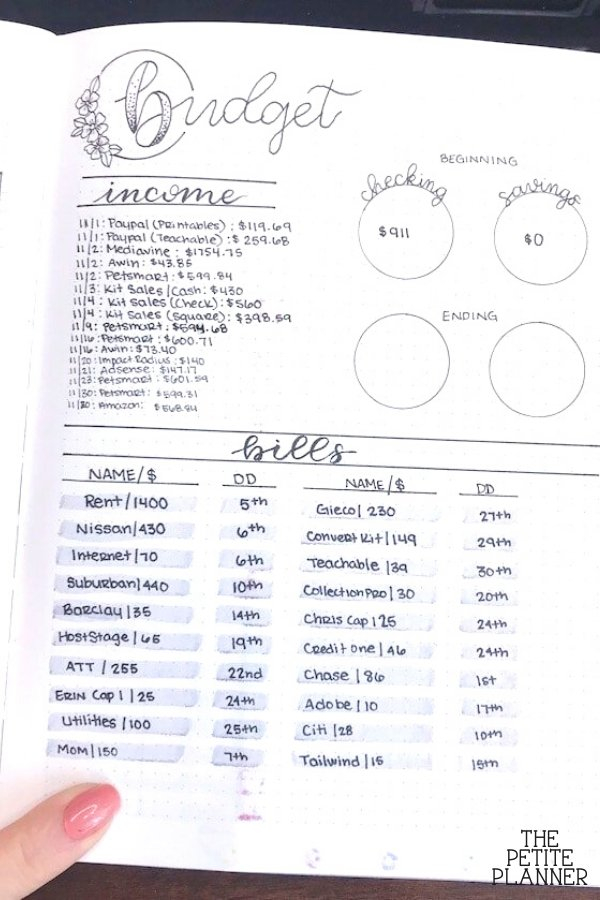 budget
income
11/1: Paypal (Printables) : $119.69
11/1: Paypal (Teachable) : $259.68
11/2: Mediavine : $1754.75
11/2: Awin: $43.85
11/2: Petsmart: $599.84
11/3: Kit Sales/Cash: $430
11/4: Kit Sales (Check): $560
11/4: Kit Sales (Square): $398.59
11/9: Petsmart: $594.68
11/16: Petsmart: $600.71
11/16: Awin: $73.40
11/20: Impact Radius: $140
11/21: Adsense: $147.17
11/23: Petsmart: $601.59
11/30: Petsmart: $599.31
11/30: Amazon: $568.84
BEGINNING
checking
$911
savings
$0
ENDING
bills
NAME/$ DD
Rent/1400 5th
Nissan/430 6th
Internet/70 6th
Suburban/440 10th
Barclay/35 14th
HostStage/65 19th
ATT/255 22nd
Erin Cap 1/25 24th
Utilities/100 25th
Mom/150 7th
NAME/$ DD
Gieco/230 27th
Convert Kit/149 29th
Teachable/39 30th
CollectionPro/30 20th
Chris Cap 1/25 24th
Credit One/46 24th
Chase/86 1st
Adobe/10 17th
Citi/28 10th
Tailwind/15 15th
THE
PETITE
PLANNER